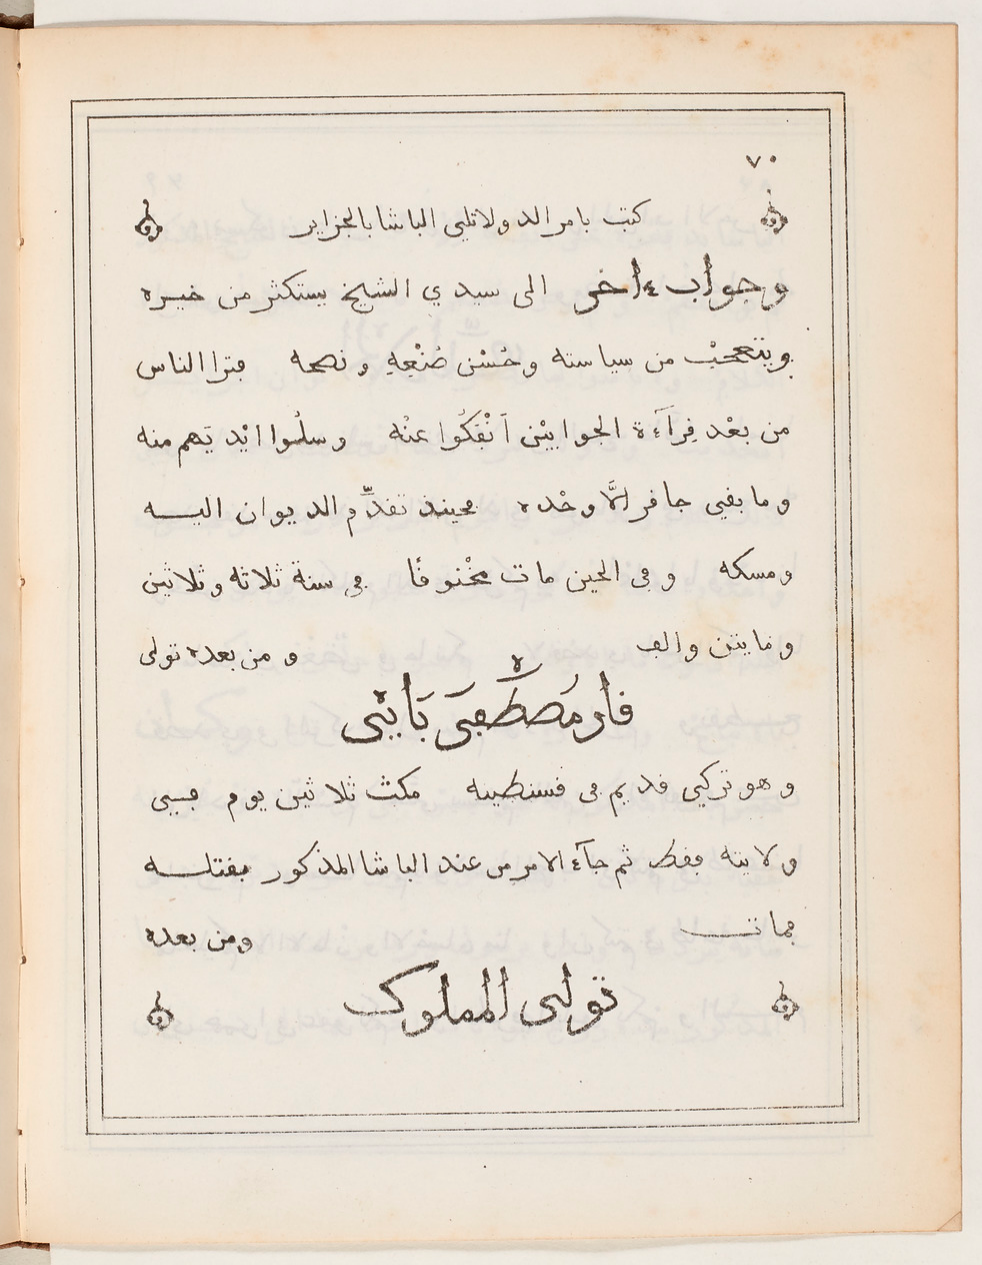 ٧٠
كتب بامر الدولاتلي الباشا بالجزاير
وجواب ءاخر الى سيدي الشيخ يستكثر من خيره
ويتعجب من سياسته وحُسْن صُنْعِهِ ونصحه فترا الناس
من بعْد فِرآءة الجوابيْن اَنْفَكُوا عنْه وسلُّوا ايْديَهم منه
وما بفي جافر الَّا وحْده فحينئذ تفدّم الديوان اليه
ومسكه وفي الحين مات مخْنوفًا في سنة ثلاثه وثلاثين
ومايتين والف ومن بعده تولى
فاره مَصْطَفَى بَايْ
وهو تركي فديم في فسنطينه مكث ثلاثين يوم في
ولايته ففط ثم جآء الامر من عند الباشا المذكور بفتله
فمات ومن بعده
تولى المملوك